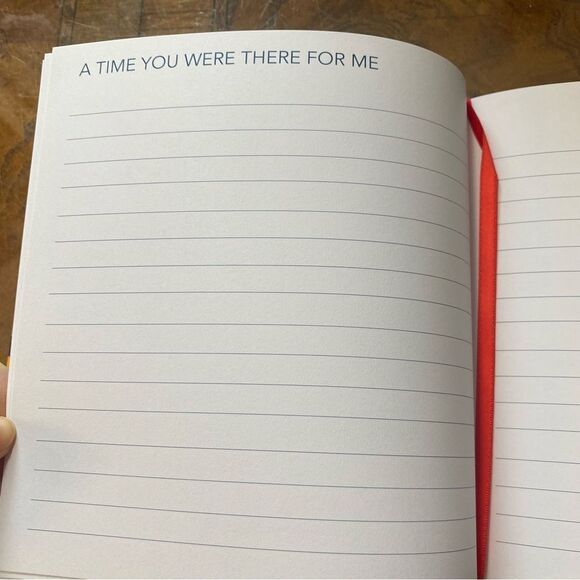 A TIME YOU WERE THERE FOR ME